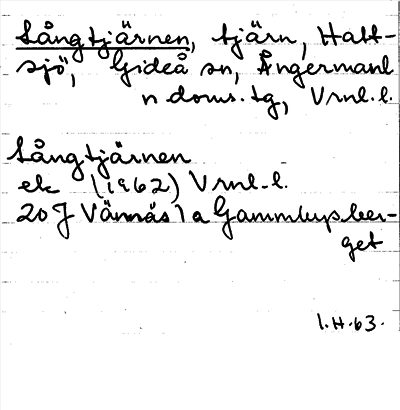 Långtjärnen, tjärn, Hatt-
sjö, Gideå sn, Ångermanl
n doms.tg, Vrnl.l.
Långtjärnen
ek (1962) Vrnl.l.
20 J Vännäs 1 a Gammlupsber-
get
I.H.63.